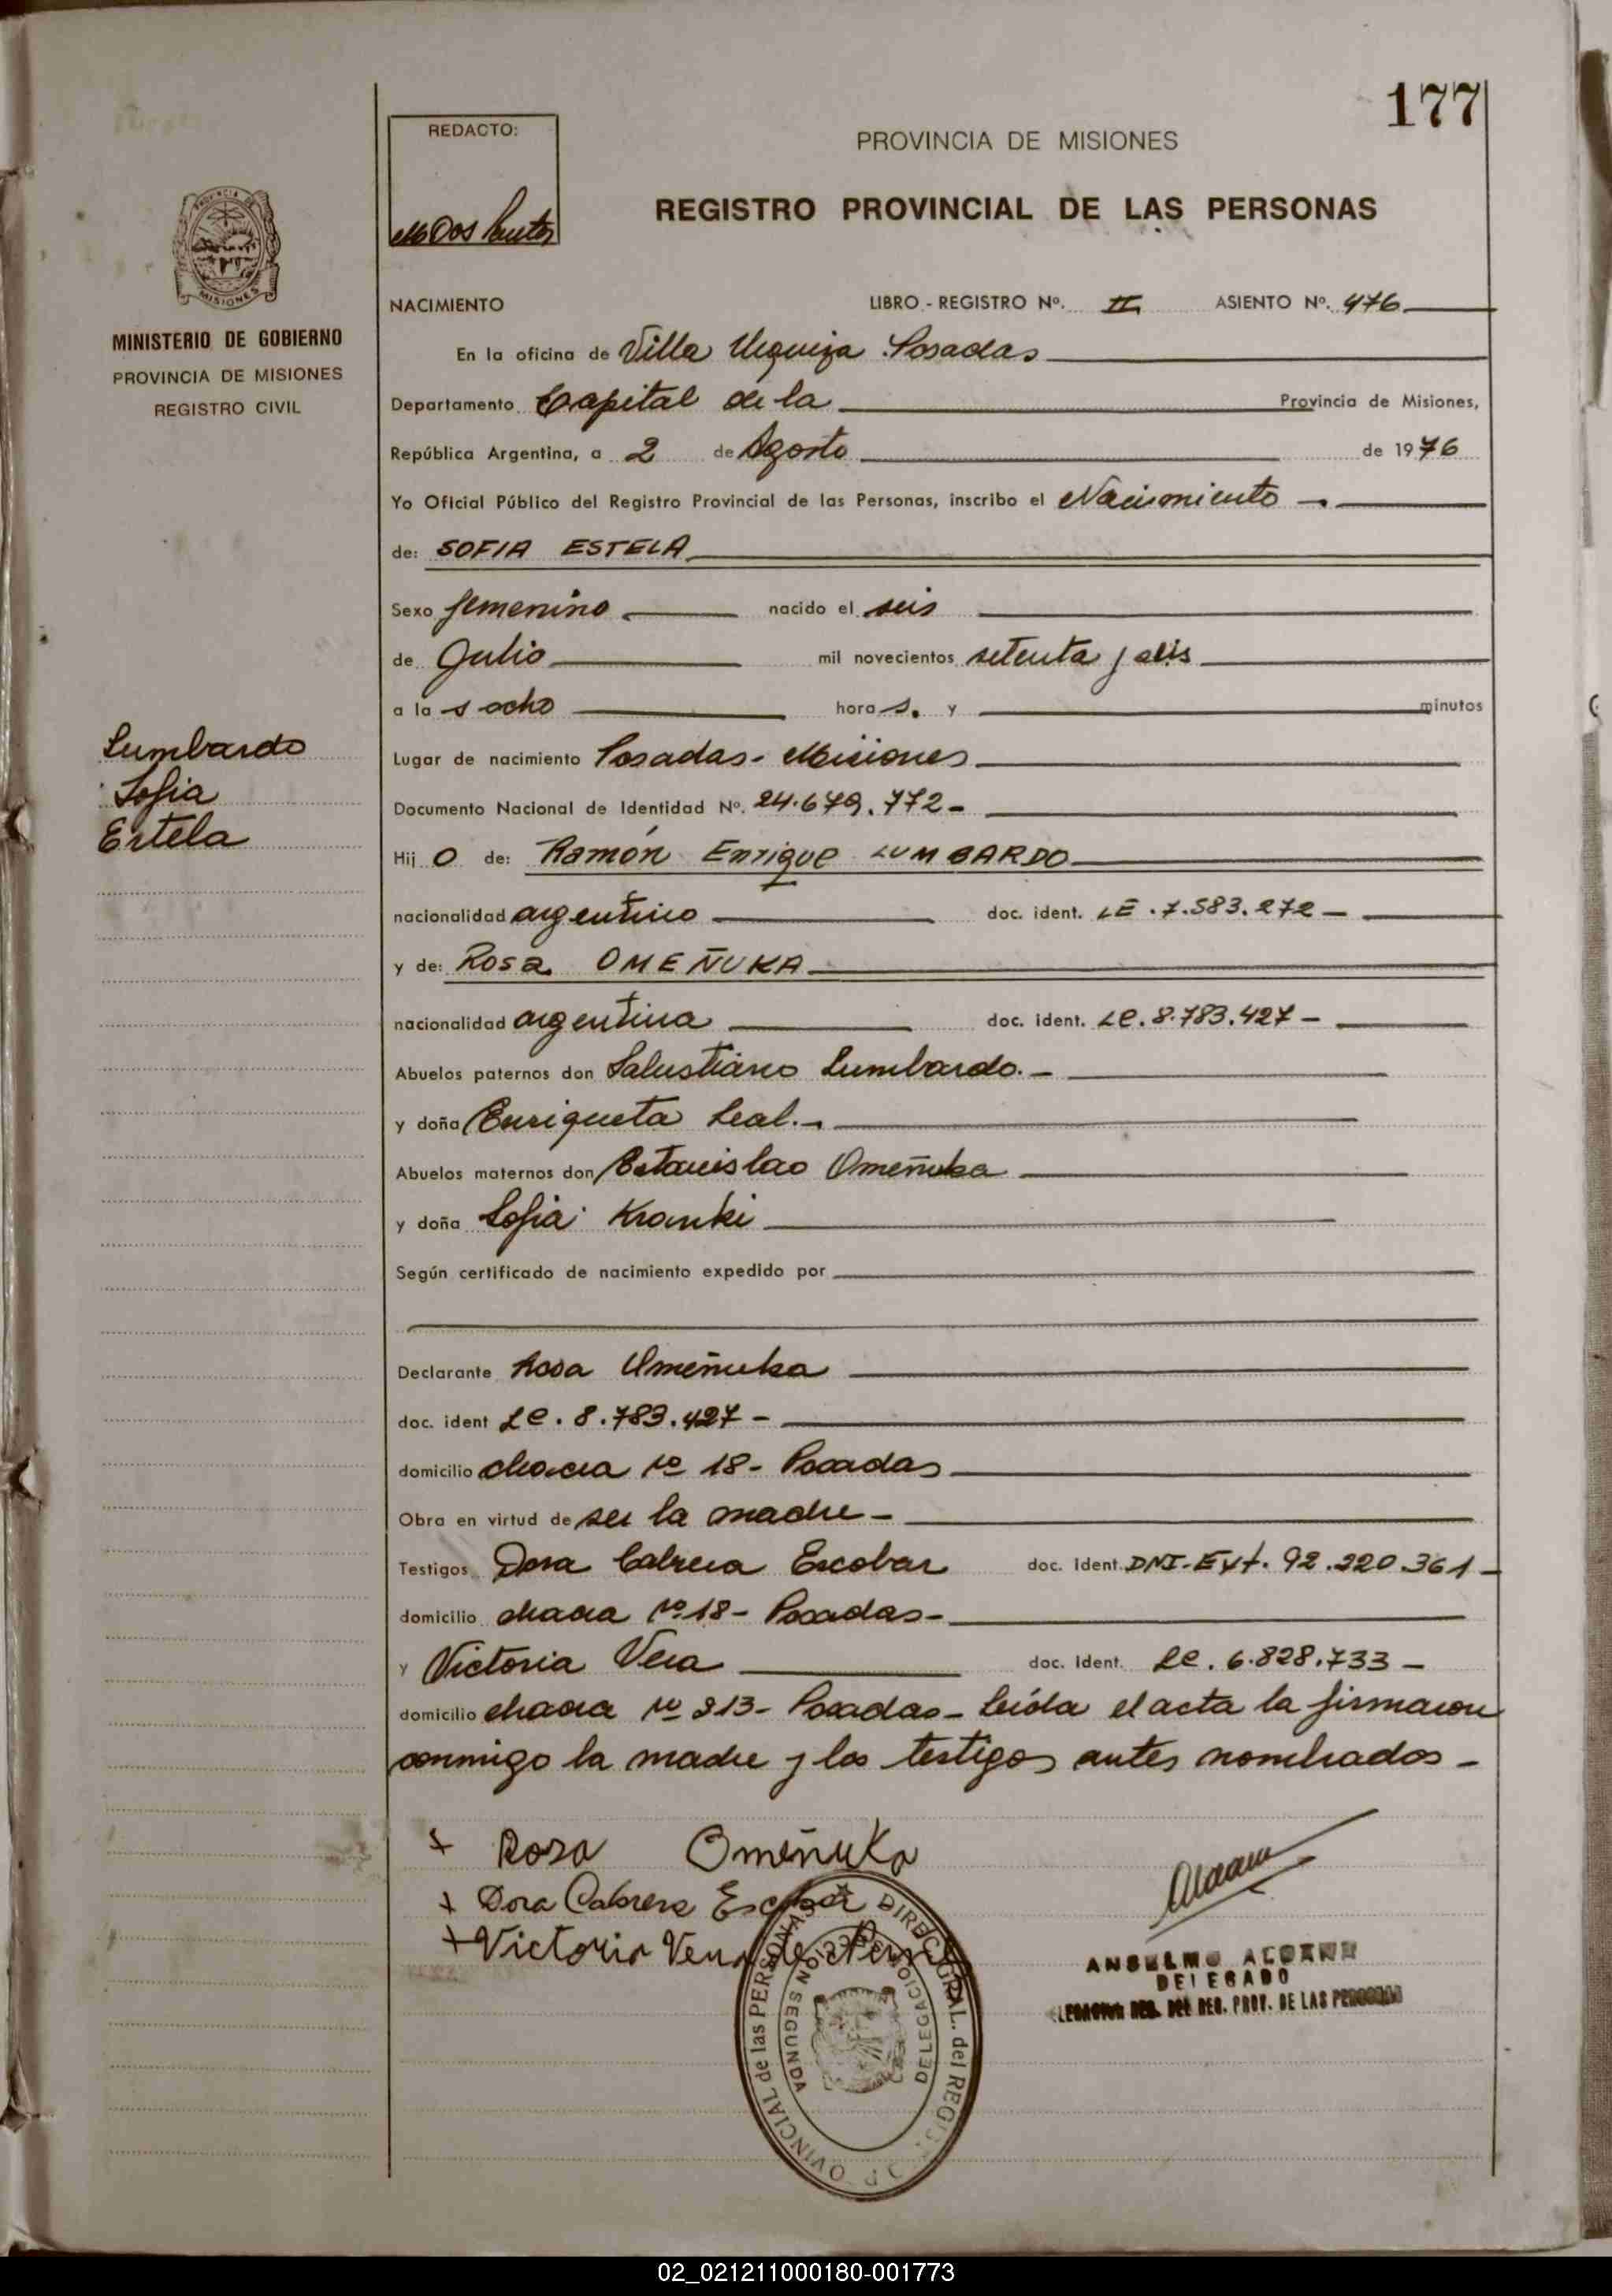 177
REDACTO:
M Dos Santos
PROVINCIA DE MISIONES
REGISTRO PROVINCIAL DE LAS PERSONAS
MISIONES
MINISTERIO DE GOBIERNO
PROVINCIA DE MISIONES
REGISTRO CIVIL
NACIMIENTO LIBRO - REGISTRO Nº. II ASIENTO Nº. 476
En la oficina de Villa Urquiza Posadas
Departamento Capital de la Provincia de Misiones,
República Argentina, a 2 de Agosto de 1976
Yo Oficial Público del Registro Provincial de las Personas, inscribo el Nacimiento
de: SOFIA ESTELA
Sexo femenino nacido el seis
de Julio mil novecientos setenta y seis
a la s ocho hora s. y minutos
Lumbardo
Sofia
Estela
Lugar de nacimiento Posadas - Misiones
Documento Nacional de Identidad Nº. 24.679.772 -
Hij o de: Ramón Enrique LUMBARDO
nacionalidad argentino doc. ident. LE. 7.583.272 -
y de: Rosa OMEÑUKA
nacionalidad argentina doc. ident. LC. 8.783.427 -
Abuelos paternos don Salustiano Lumbardo. -
y doña Enriqueta Leal. -
Abuelos maternos don Estanislao Omeñuka
y doña Sofia Kranki
Según certificado de nacimiento expedido por
Declarante Rosa Omeñuka
doc. ident LC. 8.783.427 -
domicilio chacra Nº 18 - Posadas
Obra en virtud de ser la madre -
Testigos Dora Cabrera Escobar doc. Ident. DNI-Ext. 92.220.361 -
domicilio chacra Nº 18 - Posadas -
y Victoria Vera doc. Ident. LC. 6.828.733 -
domicilio chacra Nº 313 - Posadas - Leída el acta la firmaron
conmigo la madre y los testigos antes nombrados -
+ Rosa Omeñuka
+ Dora Cabrera Escobar
+ Victoria Vera de
DIREC. GRAL. del REGIS PROVINCIAL de las PERSONAS
DELEGACION SECCION SEGUNDA
ANSELMO
DELEGADO
REG. DEL REG. PROV. DE LAS PERSONAS
02_021211000180-001773